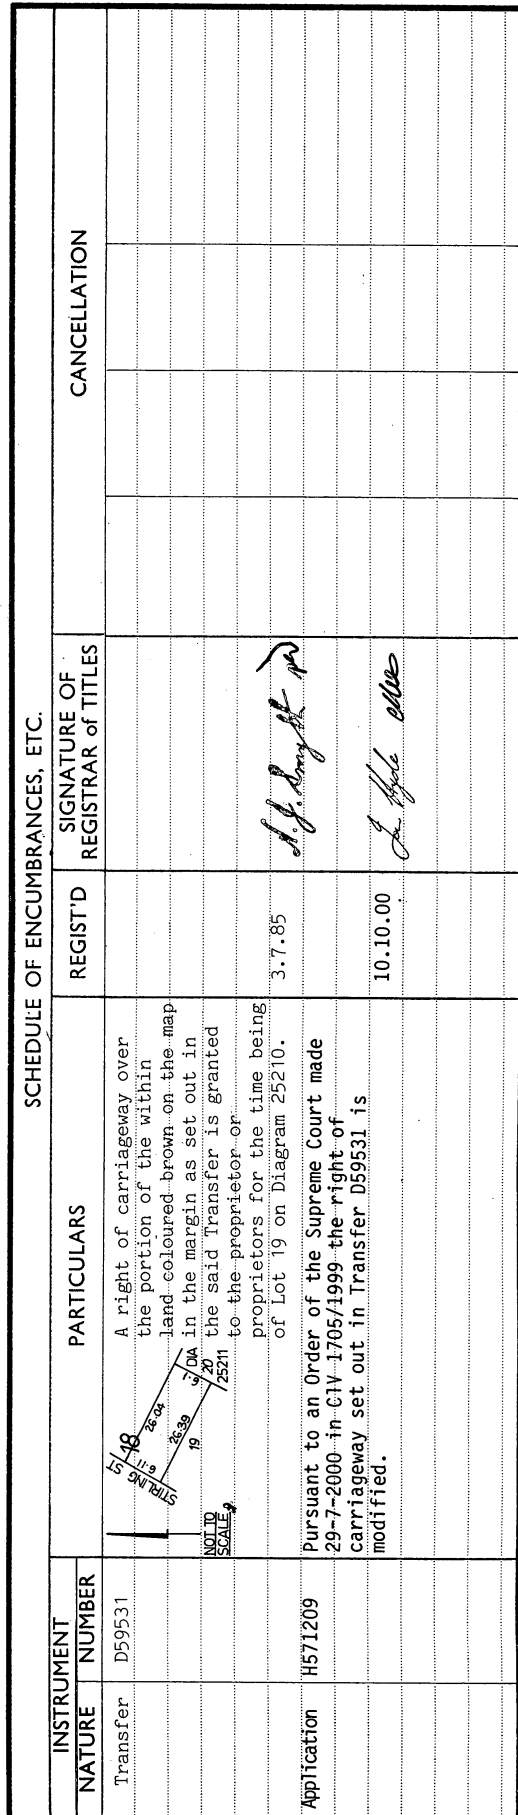 SCHEDULE OF ENCUMBRANCES, ETC.
INSTRUMENT
NATURE
NUMBER
PARTICULARS
REGIST'D
SIGNATURE OF
REGISTRAR of TITLES
CANCELLATION
Transfer
D59531
A right of carriageway over
the portion of the within
land coloured brown on the map
in the margin as set out in
the said Transfer is granted
to the proprietor or
proprietors for the time being
of Lot 19 on Diagram 25210.
3.7.85
STIRLING ST
18
6·11
26·04
26·39
19
6·11
DIA
20
25211
NOT TO
SCALE
Application
H571209
Pursuant to an Order of the Supreme Court made
29-7-2000 in CIV 1705/1999 the right of
carriageway set out in Transfer D59531 is
modified.
10.10.00